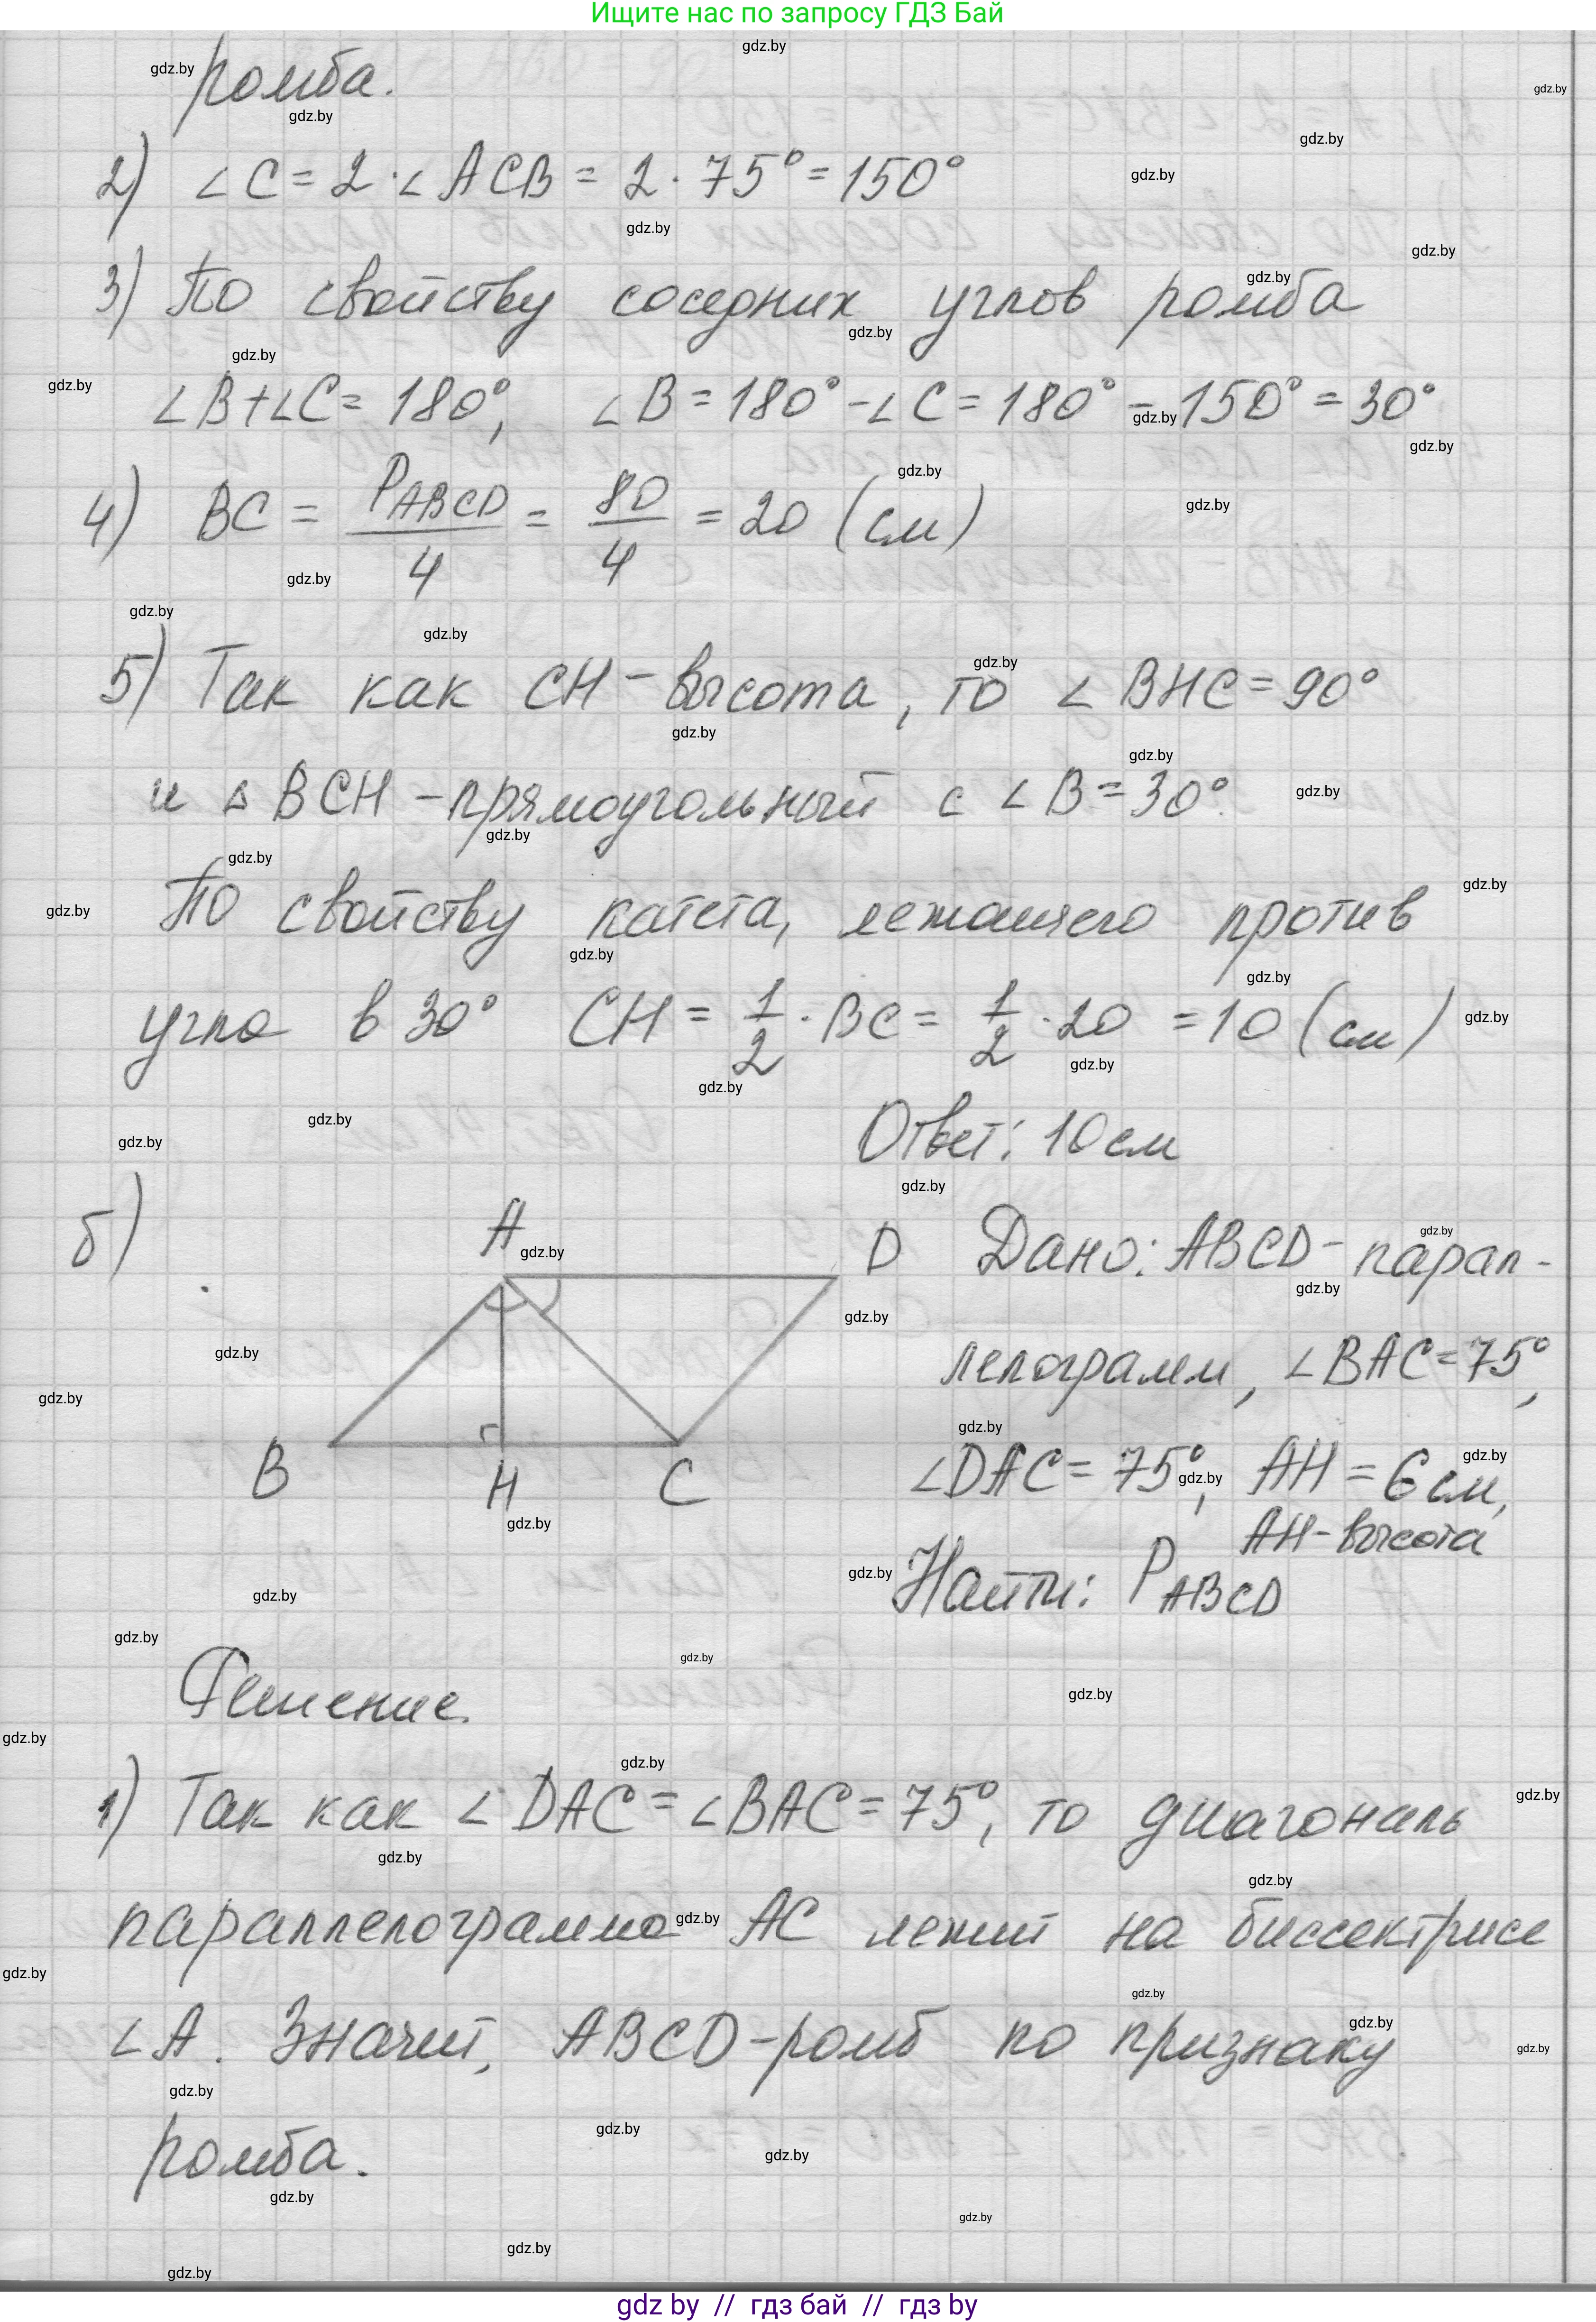 Ищите нас по запросу ГДЗ Бай
ромба.
2) ∠C = 2·∠ACB = 2·75° = 150°
3) По свойству соседних углов ромба
∠B+∠C = 180°, ∠B = 180° - ∠C = 180° - 150° = 30°
4) BC = P_ABCD/4 = 80/4 = 20 (см)
5) Так как CH - высота, то ∠BHC = 90°
и △BCH - прямоугольный с ∠B = 30°.
По свойству катета, лежащего против
угла в 30° CH = 1/2 · BC = 1/2 · 20 = 10 (см)
Ответ: 10 см
б)
A
D
B
H
C
Дано: ABCD - парал-
лелограмм, ∠BAC = 75°,
∠DAC = 75°, AH = 6 см,
AH - высота
Найти: P_ABCD
Решение.
1) Так как ∠DAC = ∠BAC = 75°, то диагональ
параллелограмма AC лежит на биссектрисе
∠A. Значит, ABCD - ромб по признаку
ромба.
gdz by // гдз бай // гдз by